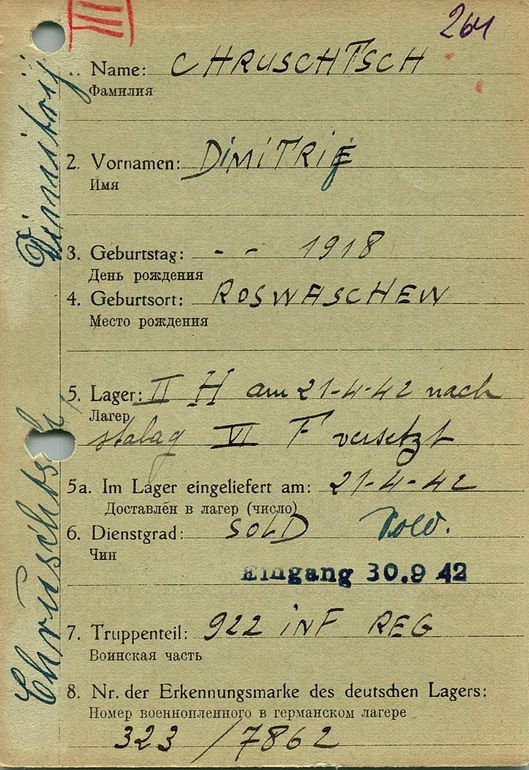 III
264
Name: CHRUSCHTSCH
Фамилия
2. Vornamen: DIMITRIE
Имя
3. Geburtstag: - - 1918
День рождения
4. Geburtsort: ROSWASCHEW
Место рождения
5. Lager: II H am 21-4-42 nach
Лагер
stalag VI F versetzt
5a. Im Lager eingeliefert am: 21-4-42
Доставлен в лагер (число)
6. Dienstgrad: SOLD Sold.
Чин
Eingang 30.9 42
7. Truppenteil: 922 INF REG
Воинская часть
8. Nr. der Erkennungsmarke des deutschen Lagers:
Номер военнопленного в германском лагере
323 / 7862
Chruschtsch, Dimitrij